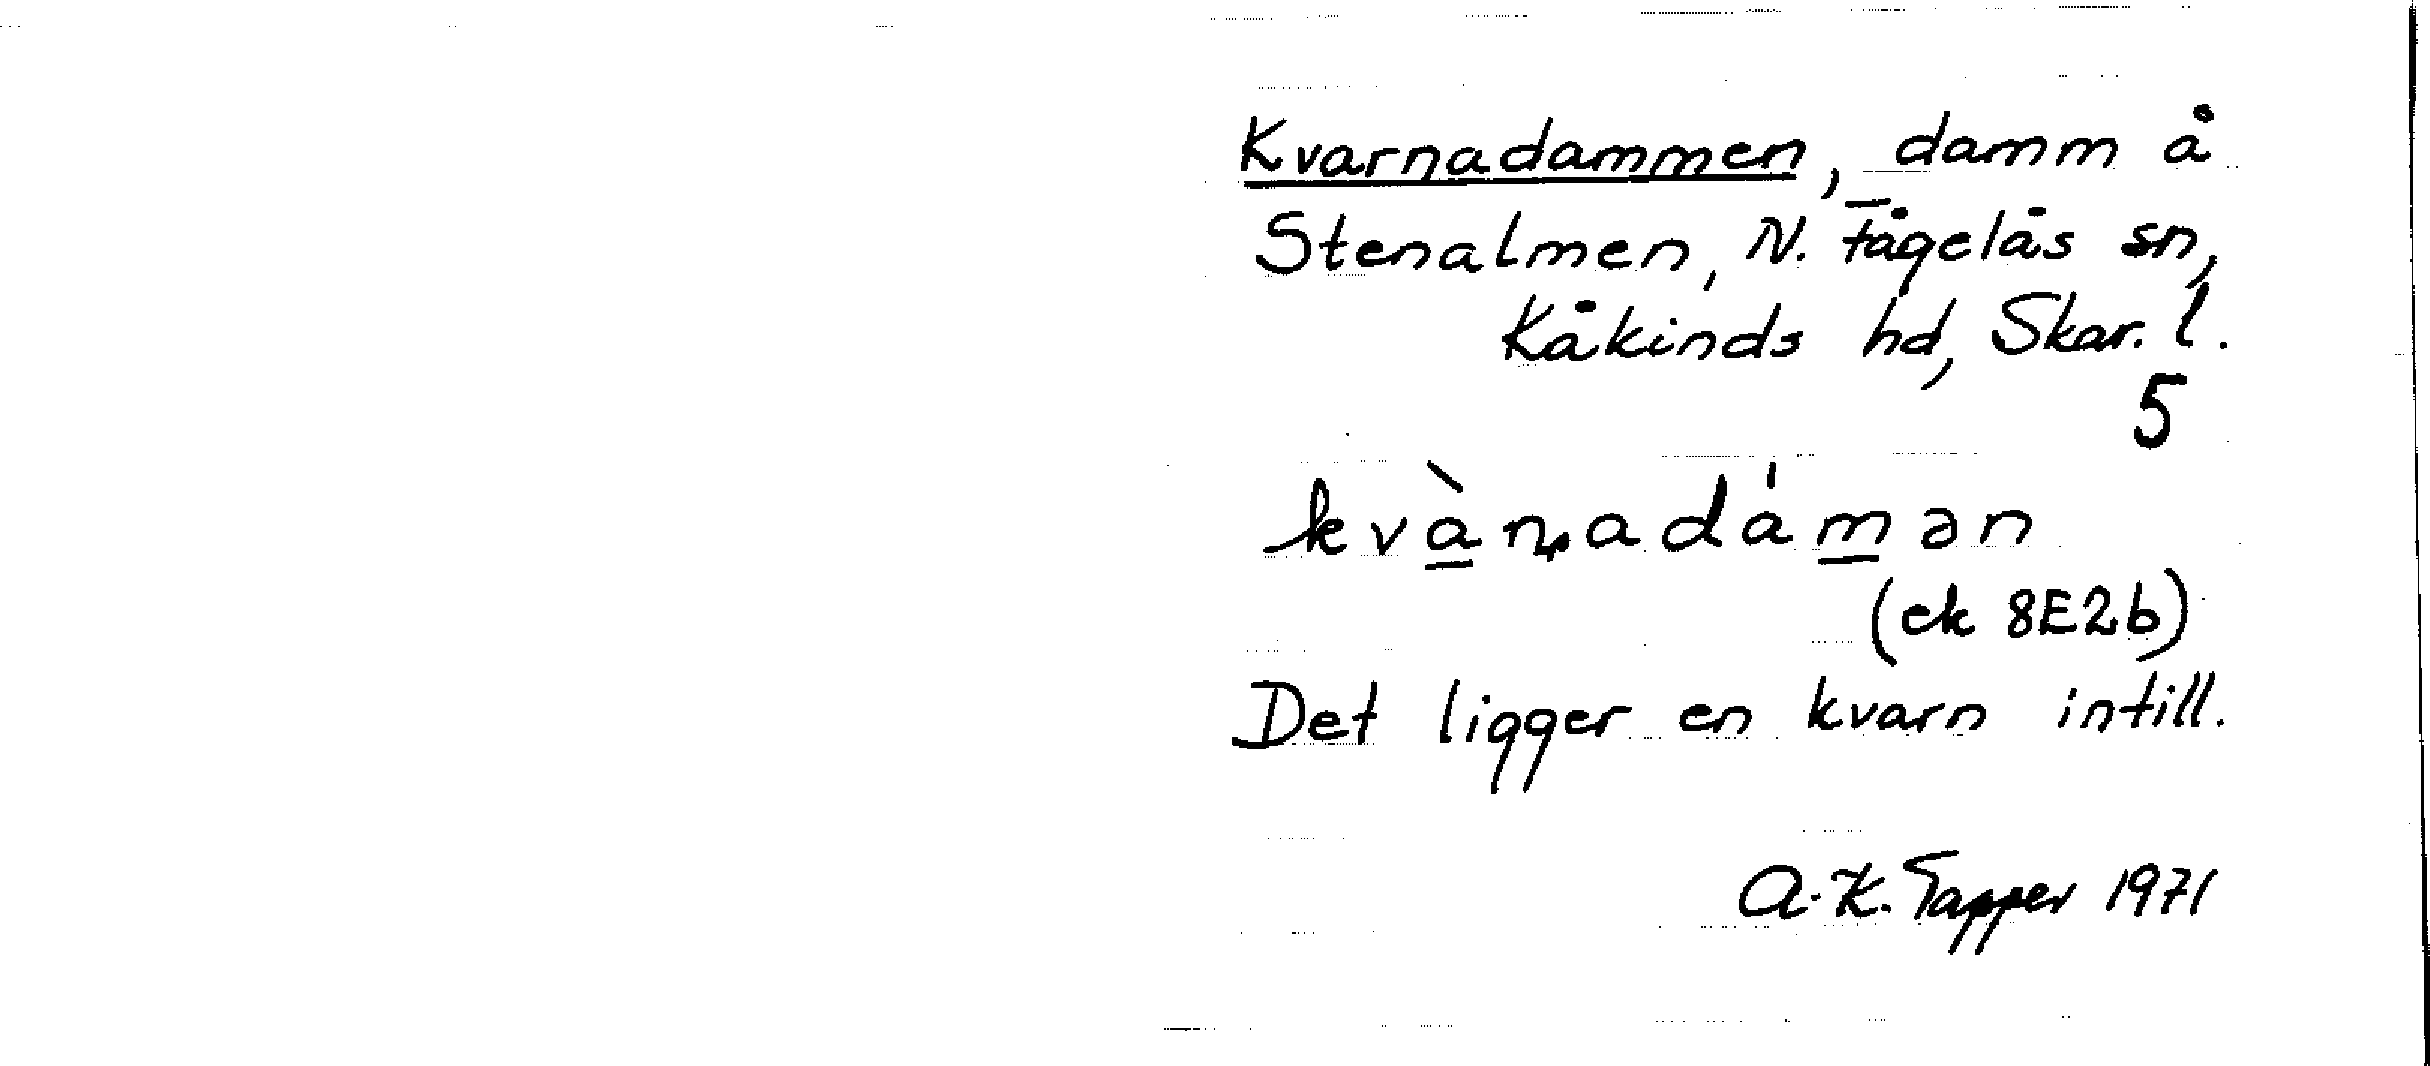 Kvarnadammen, damm å
Stenalmen, N. Fågelås sn,
Kåkinds hd, Skar. l.
5
kvàɳadámən
(ek 8E2b)
Det ligger en kvarn intill.
A-K. Tapper 1971